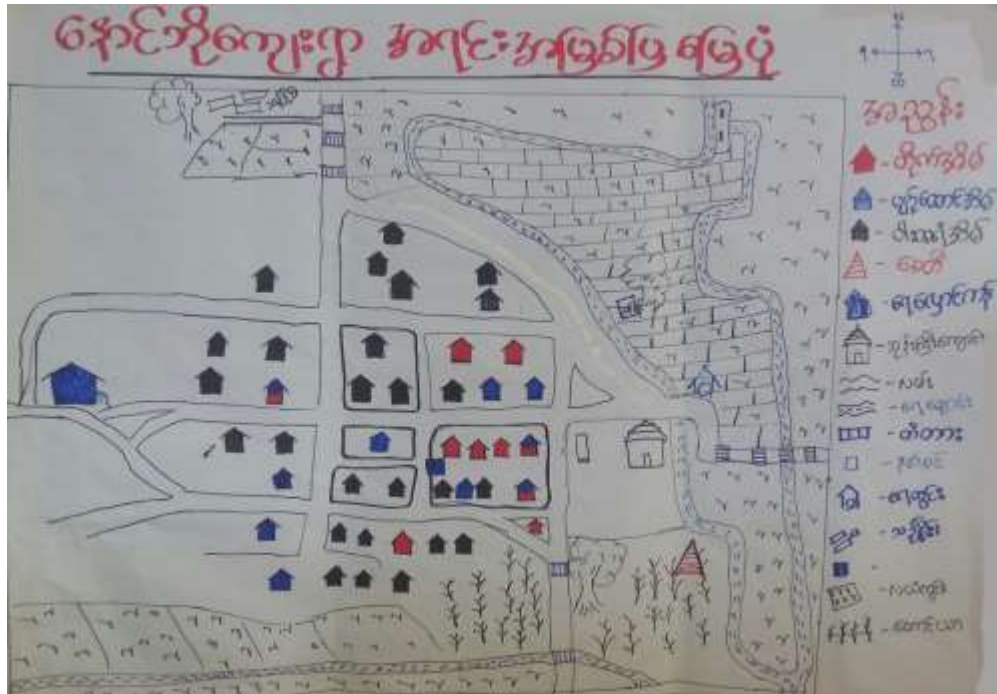 နောင်ဘိုကျေးရွာ အရင်းအမြစ်ပြ မြေပုံ
အညွှန်း
- တိုက်အိမ်
- ပျဉ်ထောင်အိမ်
- ဝါးထရံအိမ်
- စေတီ
- ဘုန်းကြီးကျောင်း
- လမ်း
- ရေချောင်း
- တံတား
- ရေတွင်း
- သင်္ချိုင်း
-
- လယ်ကွင်း
- တောင်ယာ